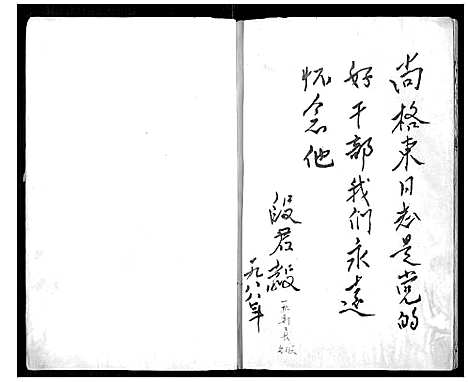 尚格东同志是党的
好干部我们永远
怀念他
段君毅
一九八八年